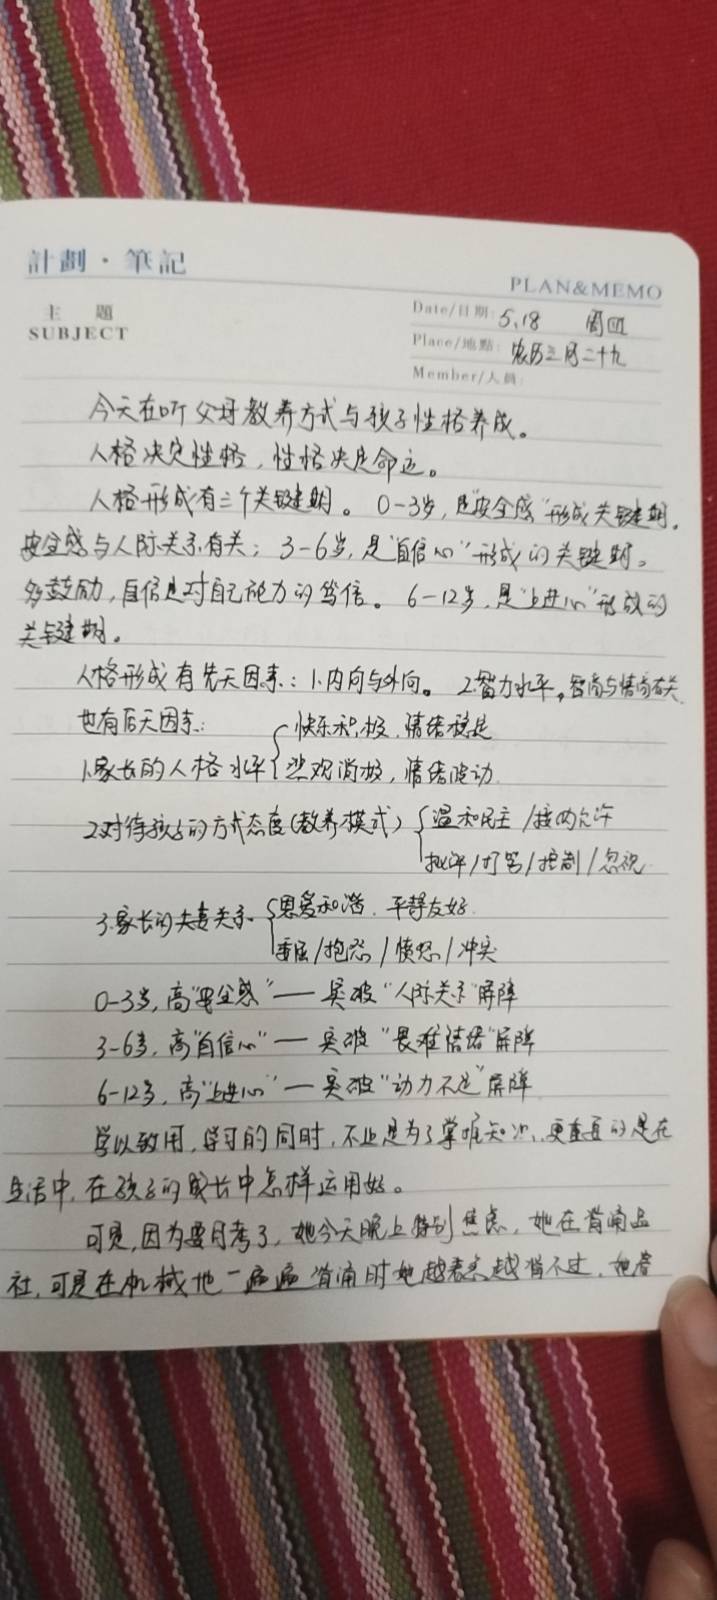 計劃·筆記
PLAN&MEMO
主 題
SUBJECT
Date/日期: 5.18 周四
Place/地點: 农历三月二十九
Member/人員:
今天在听父母教养方式与孩子性格养成。
人格决定性格，性格决定命运。
人格形成有三个关键期。0-3岁，是"安全感"形成关键期。
安全感与人际关系有关；3-6岁，是"自信心"形成的关键期。
多鼓励，自信是对自己能力的笃信。6-12岁，是"上进心"形成的
关键期。
人格形成有先天因素：1.内向与外向。 2.智力水平。智商与情商有关
也有后天因素： 快乐积极，情绪稳定
1.家长的人格水平 悲观消极，情绪波动
2.对待孩子的方式态度(教养模式) 温和民主/接纳允许
批评/打骂/控制/忽视
3.家长的夫妻关系 恩爱和谐，平等友好
委屈/抱怨/愤怒/冲突
0-3岁，高"安全感"——突破"人际关系"屏障
3-6岁，高"自信心"——突破"畏难情绪"屏障
6-12岁，高"上进心"——突破"动力不足"屏障
学以致用，学习的同时，不止是为了掌握知识，更重要的是在
生活中，在孩子的成长中怎样运用好。
可是，因为要月考了，她今天晚上特别焦虑，她在背诵品
社，可是在机械地一遍遍背诵时她越来越背不过，她着